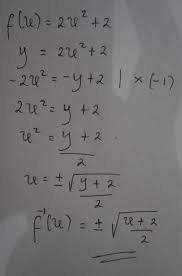 f(u) = 2u² + 2
y = 2u² + 2
-2u² = -y + 2 | × (-1)
2u² = y + 2
u² = (y + 2)/2
u = ± √((y + 2)/2)
f⁻¹(u) = ± √((u + 2)/2)